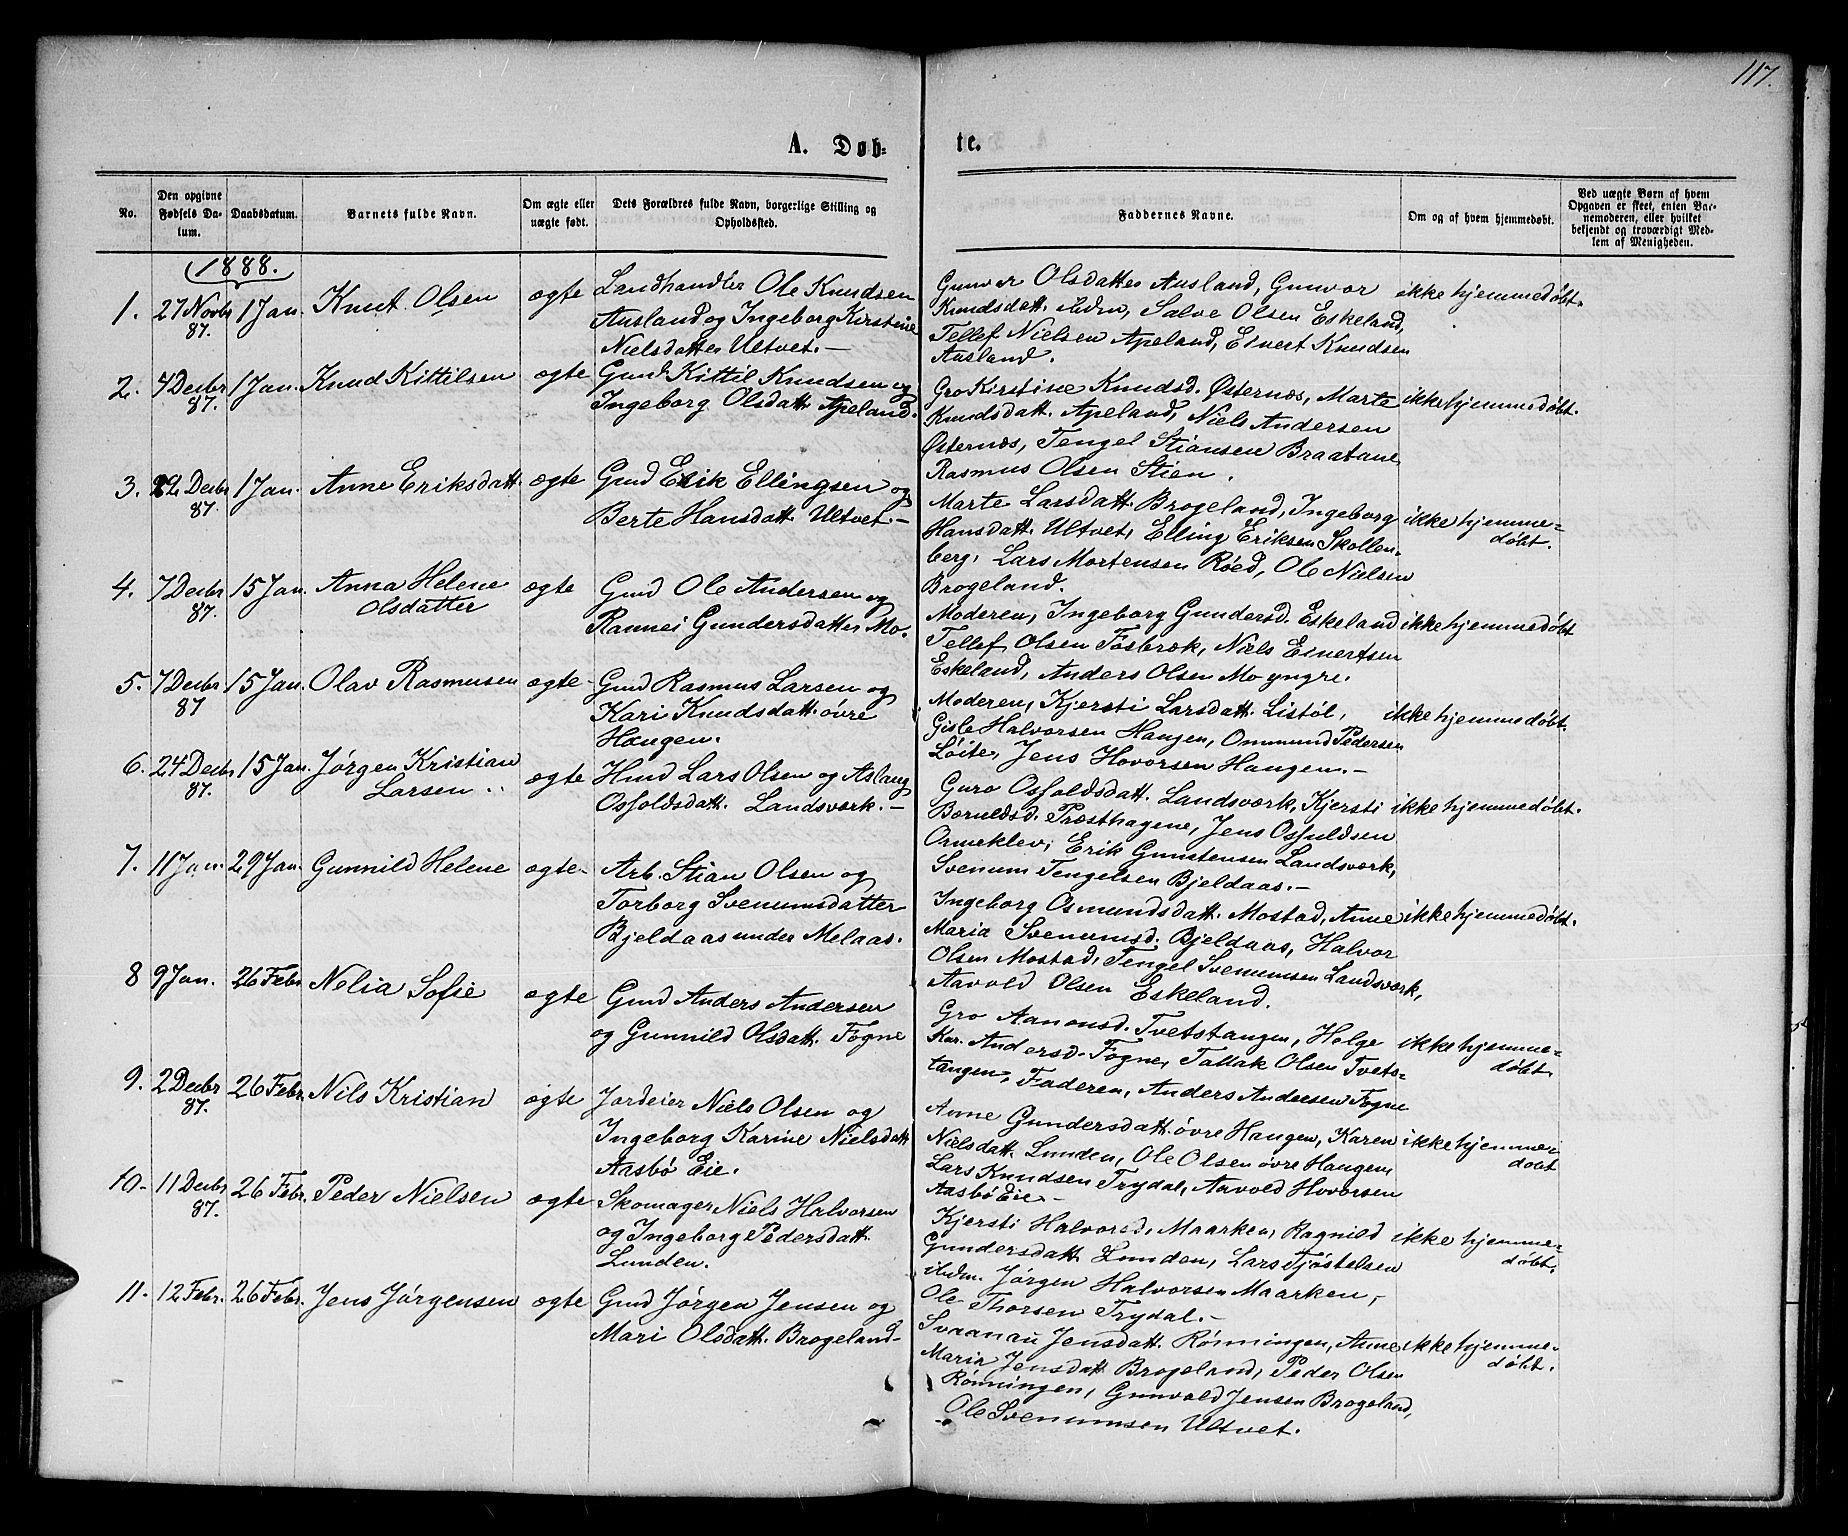 117.
A. Døbte.
No.
Den opgivne Fødsels Datum.
Daabsdatum.
Barnets fulde Navn.
Om ægte eller uægte født.
Dets Forældres fulde Navn, borgerlige Stilling og Opholdssted.
Faddernes Navne.
Om og af hvem hjemmedøbt.
Ved uægte Børn af hvem Opgaven er skeet, enten Barnemoderen, eller hvilket bekjendt og troværdigt Medlem af Menigheden.
1888.
1. 27 Novbr 87. 1 Jan. Knut Olsen ægte
Landhandler Ole Knudsen
Ausland og Ingeborg Kirstine
Nielsdatter Ultvet.-
Gunvor Olsdatter Ausland, Gunvor
Knudsdatt. ibidm, Salve Olsen Eskeland,
Tellef Nielsen Apeland, Eivert Knudsen
Ausland.
ikke hjemmedøbt.
2. 4 Decbr 87. 1 Jan. Knud Kittilsen ægte
Gmd. Kittil Knudsen og
Ingeborg Olsdatt. Apeland.
Gro Kirstine Knudsd. Østernæs, Marte
Knudsdatt. Apeland, Niels Andersen
Østernæs, Tengel Stiansen Braatane
Rasmus Olsen Stien.
ikke hjemmedøbt.
3. Decbr 87. 1 Jan. Anne Eriksdatt. ægte
Gmd Erik Ellingsen og
Berte Hansdatt. Ultvet.-
Marte Larsdatt. Brogeland, Ingeborg
Hansdatt. Ultvet, Elling Eriksen Skollen-
berg, Lars Mortensen Røed, Ole Nielsen
Brogeland.
ikke hjemme-
døbt.
4. 7 Decbr 87. 15 Jan. Anna Helene
Olsdatter ægte
Gmd Ole Andersen og
Rannei Gundersdatter Mo.
Moderen, Ingeborg Gundersd. Eskeland
Tellef Olsen Fosbræk, Niels Eivertsen
Eskeland, Anders Olsen Mo yngre.
ikke hjemmedøbt
5. 7 Decbr 87 15 Jan. Olav Rasmusen ægte
Gmd Rasmus Larsen og
Kari Knudsdatt. øvre
Haugen.
Moderen, Kjersti Larsdatt. Listøl,
Gisle Halvorsen Haugen, Ommund Pedersen
Løite, Jens Hovorsen Haugen.-
ikke hjemmedøbt.
6. 24 Decbr 87. 15 Jan. Jørgen Kristian
Larsen ægte
Hmd Lars Olsen og Aslaug
Osfoldsdatt. Landsværk.-
Guro Osfoldsdatt. Landsværk, Kjersti
Beruldsd. Præsthagene, Jens Osfuldsen
Ormeklev, Erik Gunstensen Landsværk,
Svenum Tengelsen Bjeldaas.-
ikke hjemmedøbt.
7. 11 Jan. 29 Jan. Gunnild Helene ægte
Arb. Stian Olsen og
Torborg Svenumsdatter
Bjeldaas under Melaas.
Ingeborg Osmundsdatt. Mostad, Anne
Maria Svenumsd. Bjeldaas, Halvor
Olsen Mostad, Tengel Svenumsen Landsværk,
Aavold Olsen Eskeland.
ikke hjemmedøbt.
8 9 Jan. 26 Febr. Nelia Sofie ægte
Gmd Anders Andersen
og Gunnild Olsdatt. Fogne
Gro Aanonsd. Tvetstangen, Helge
Kar. Andersd. Fogne, Tallak Olsen Tvets-
tangen, Faderen, Anders Andersen Fogne
ikke hjemme-
døbt.
9. 2 Decbr 87. 26 Febr. Nils Kristian ægte
Jordeier Niels Olsen og
Ingeborg Karine Nielsdatt
Aasbø Eie.
Anne Gundersdatt. øvre Haugen, Karen
Nielsdatt. Lunden, Ole Olsen øvre Haugen,
Lars Knudsen Trydal, Aavold Hovorsen
Aasbø Eie.-
ikke hjemme-
døbt
10. 11 Decbr 87. 26 Febr. Peder Nielsen ægte
Skomager Niels Halvorsen
og Ingeborg Pedersdatt.
Lunden.
Kjersti Halvorsd. Maarken, Ragnild
Gundersdatt Lunden, Lars Tjøstelsen
ibidm. Jørgen Halvorsen Maarken,
Ole Thorsen Trydal.-
ikke hjemme-
døbt.
11. 12 Febr. 26 Febr. Jens Jørgensen ægte
Gmd Jørgen Jensen og
Mari Olsdatt. Brogeland-
Svaanau Jensdatt. Rønningen, Anne
Maria Jensdatt Brogeland, Peder Olsen
Rønningen, Gunvald Jensen Brogeland,
Ole Svenumsen Ultvet.
ikke hjemme-
døbt.